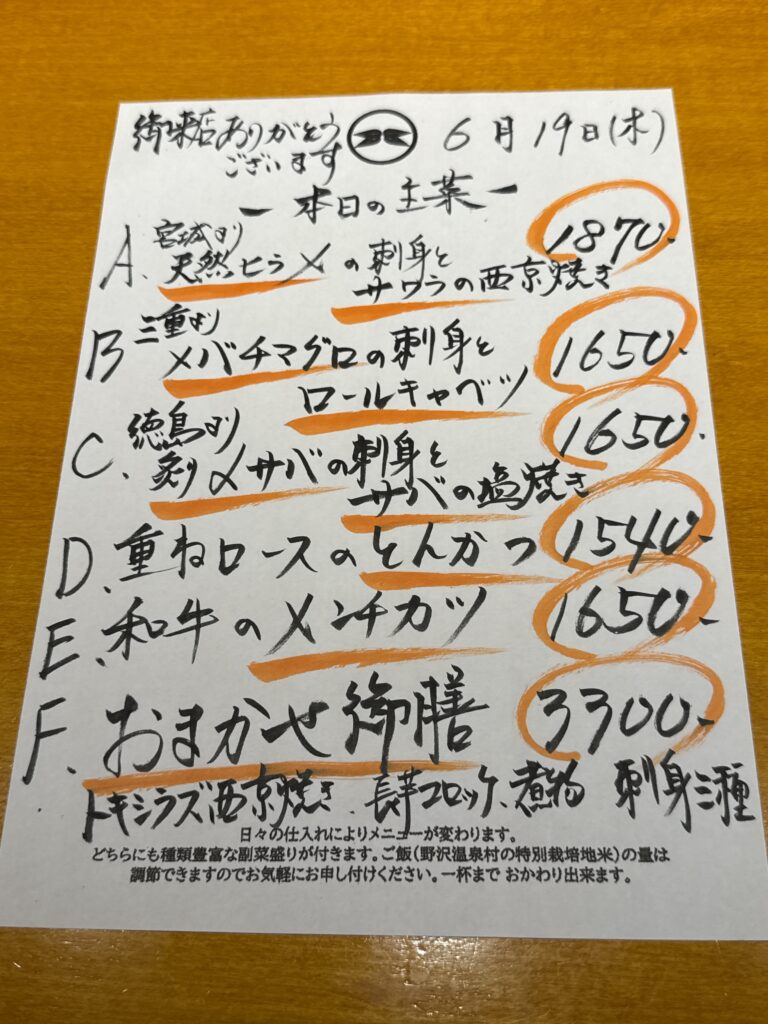 御来店ありがとう
ございます
6月19日(木)
ー本日の主菜ー
A. 宮城より
天然ヒラメの刺身と
サワラの西京焼き
1870-
B 三重より
メバチマグロの刺身と
ロールキャベツ
1650-
C. 徳島より
炙り〆サバの刺身と
サバの塩焼き
1650-
D. 重ねロースのとんかつ 1540-
E. 和牛のメンチカツ 1650-
F. おまかせ御膳 3300-
トキシラズ西京焼き、長芋コロッケ、煮物 刺身三種
日々の仕入れによりメニューが変わります。
どちらにも種類豊富な副菜盛りが付きます。ご飯(野沢温泉村の特別栽培地米)の量は
調節できますのでお気軽にお申し付けください。一杯まで おかわり出来ます。